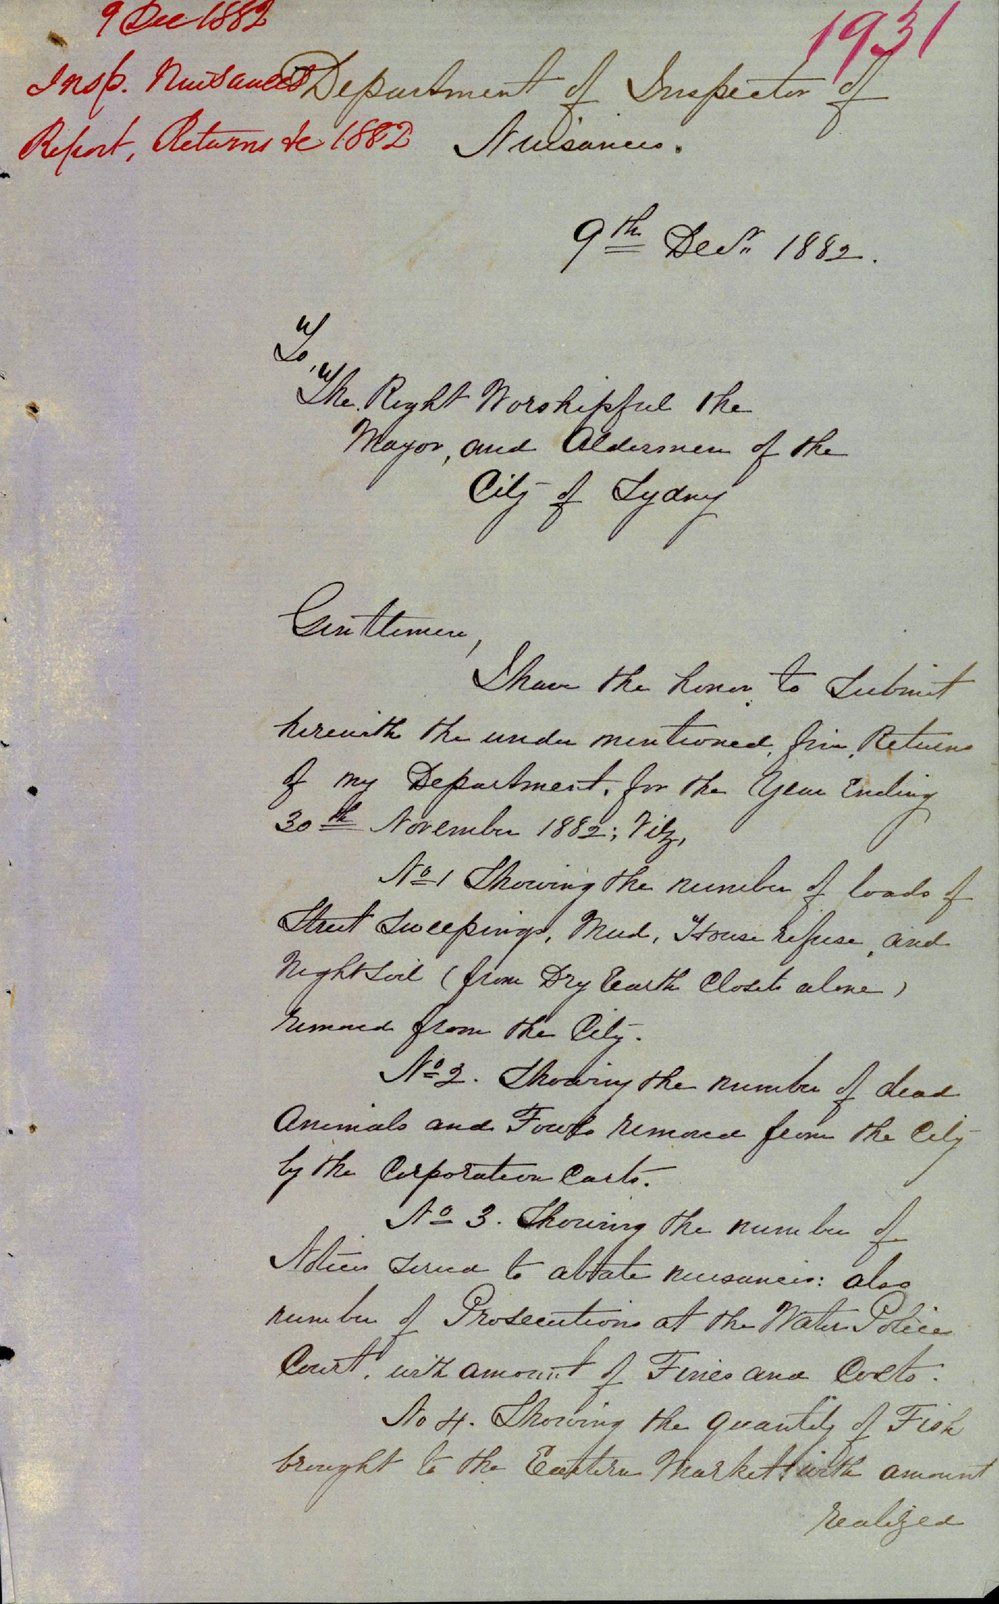 9 Dec 1882
1931
Insp. Nuisances
Report, Returns &c 1882
Department of Inspector of
Nuisances.
9th Decr. 1882.
To,
The Right Worshipful the
Mayor, and Aldermen of the
City of Sydney
Gentlemen,
I have the honor to Submit
herewith the under mentioned, five, Returns
of my Department, for the Year Ending
30th November 1882; Viz,
No 1 Showing the number of loads of
Street Sweepings, Mud, House refuse, and
Nightsoil (from Dry Earth Closets alone)
removed from the City.
No 2. Showing the number of dead
Animals and Fowls removed from the City
by the Corporation Carts.
No 3. Showing the number of
Notices served to abate nuisances: also
number of Prosecutions at the Water Police
Court, with amount of Fines and Costs.
No 4. Showing the quantity of Fish
brought to the Eastern Market with amount
realized